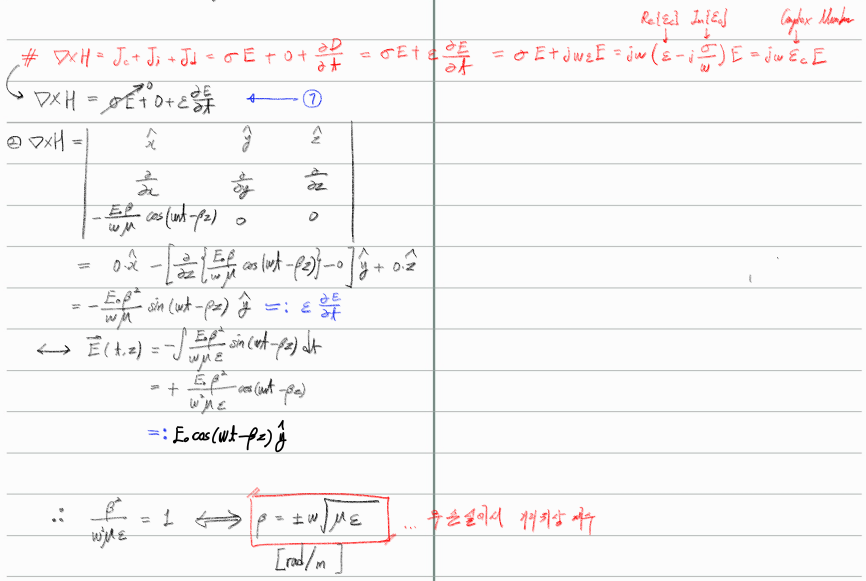 Re{ε_c} Im{ε_c} Complex Number
# ∇×H = J_c + J_i + J_d = σE + 0 + ∂D/∂t = σE + ε ∂E/∂t = σE + jωεE = jω(ε - j σ/ω)E = jω ε_c E
∇×H = σE + 0 + ε ∂E/∂t ← ⑦
0
② ∇×H = | x̂ ŷ ẑ |
| ∂/∂x ∂/∂y ∂/∂z |
| -E₀β/ωμ cos(ωt-βz) 0 0 |
= 0·x̂ - [∂/∂z {E₀β/ωμ cos(ωt-βz)} - 0] ŷ + 0·ẑ
= - E₀β²/ωμ sin(ωt-βz) ŷ =: ε ∂E/∂t
↔ E⃗(t,z) = -∫ E₀β²/ωμε sin(ωt-βz) dt
= + E₀β²/ω²με cos(ωt-βz)
=: E₀cos(ωt-βz)ŷ
∴ β²/ω²με = 1 ⟺ β = ±ω√με ... 무손실에서 위상 계수
[rad/m]